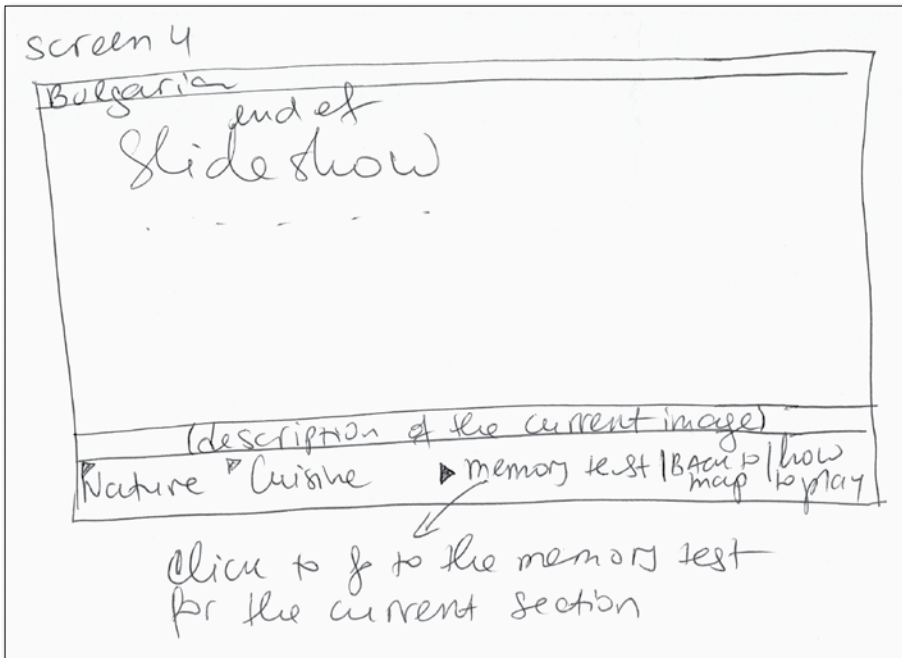 screen 4
Bulgaria
end of
Slide show
(description of the current image)
Nature Cuisine memory test | Back to map | how to play
Click to go to the memory test
for the current section